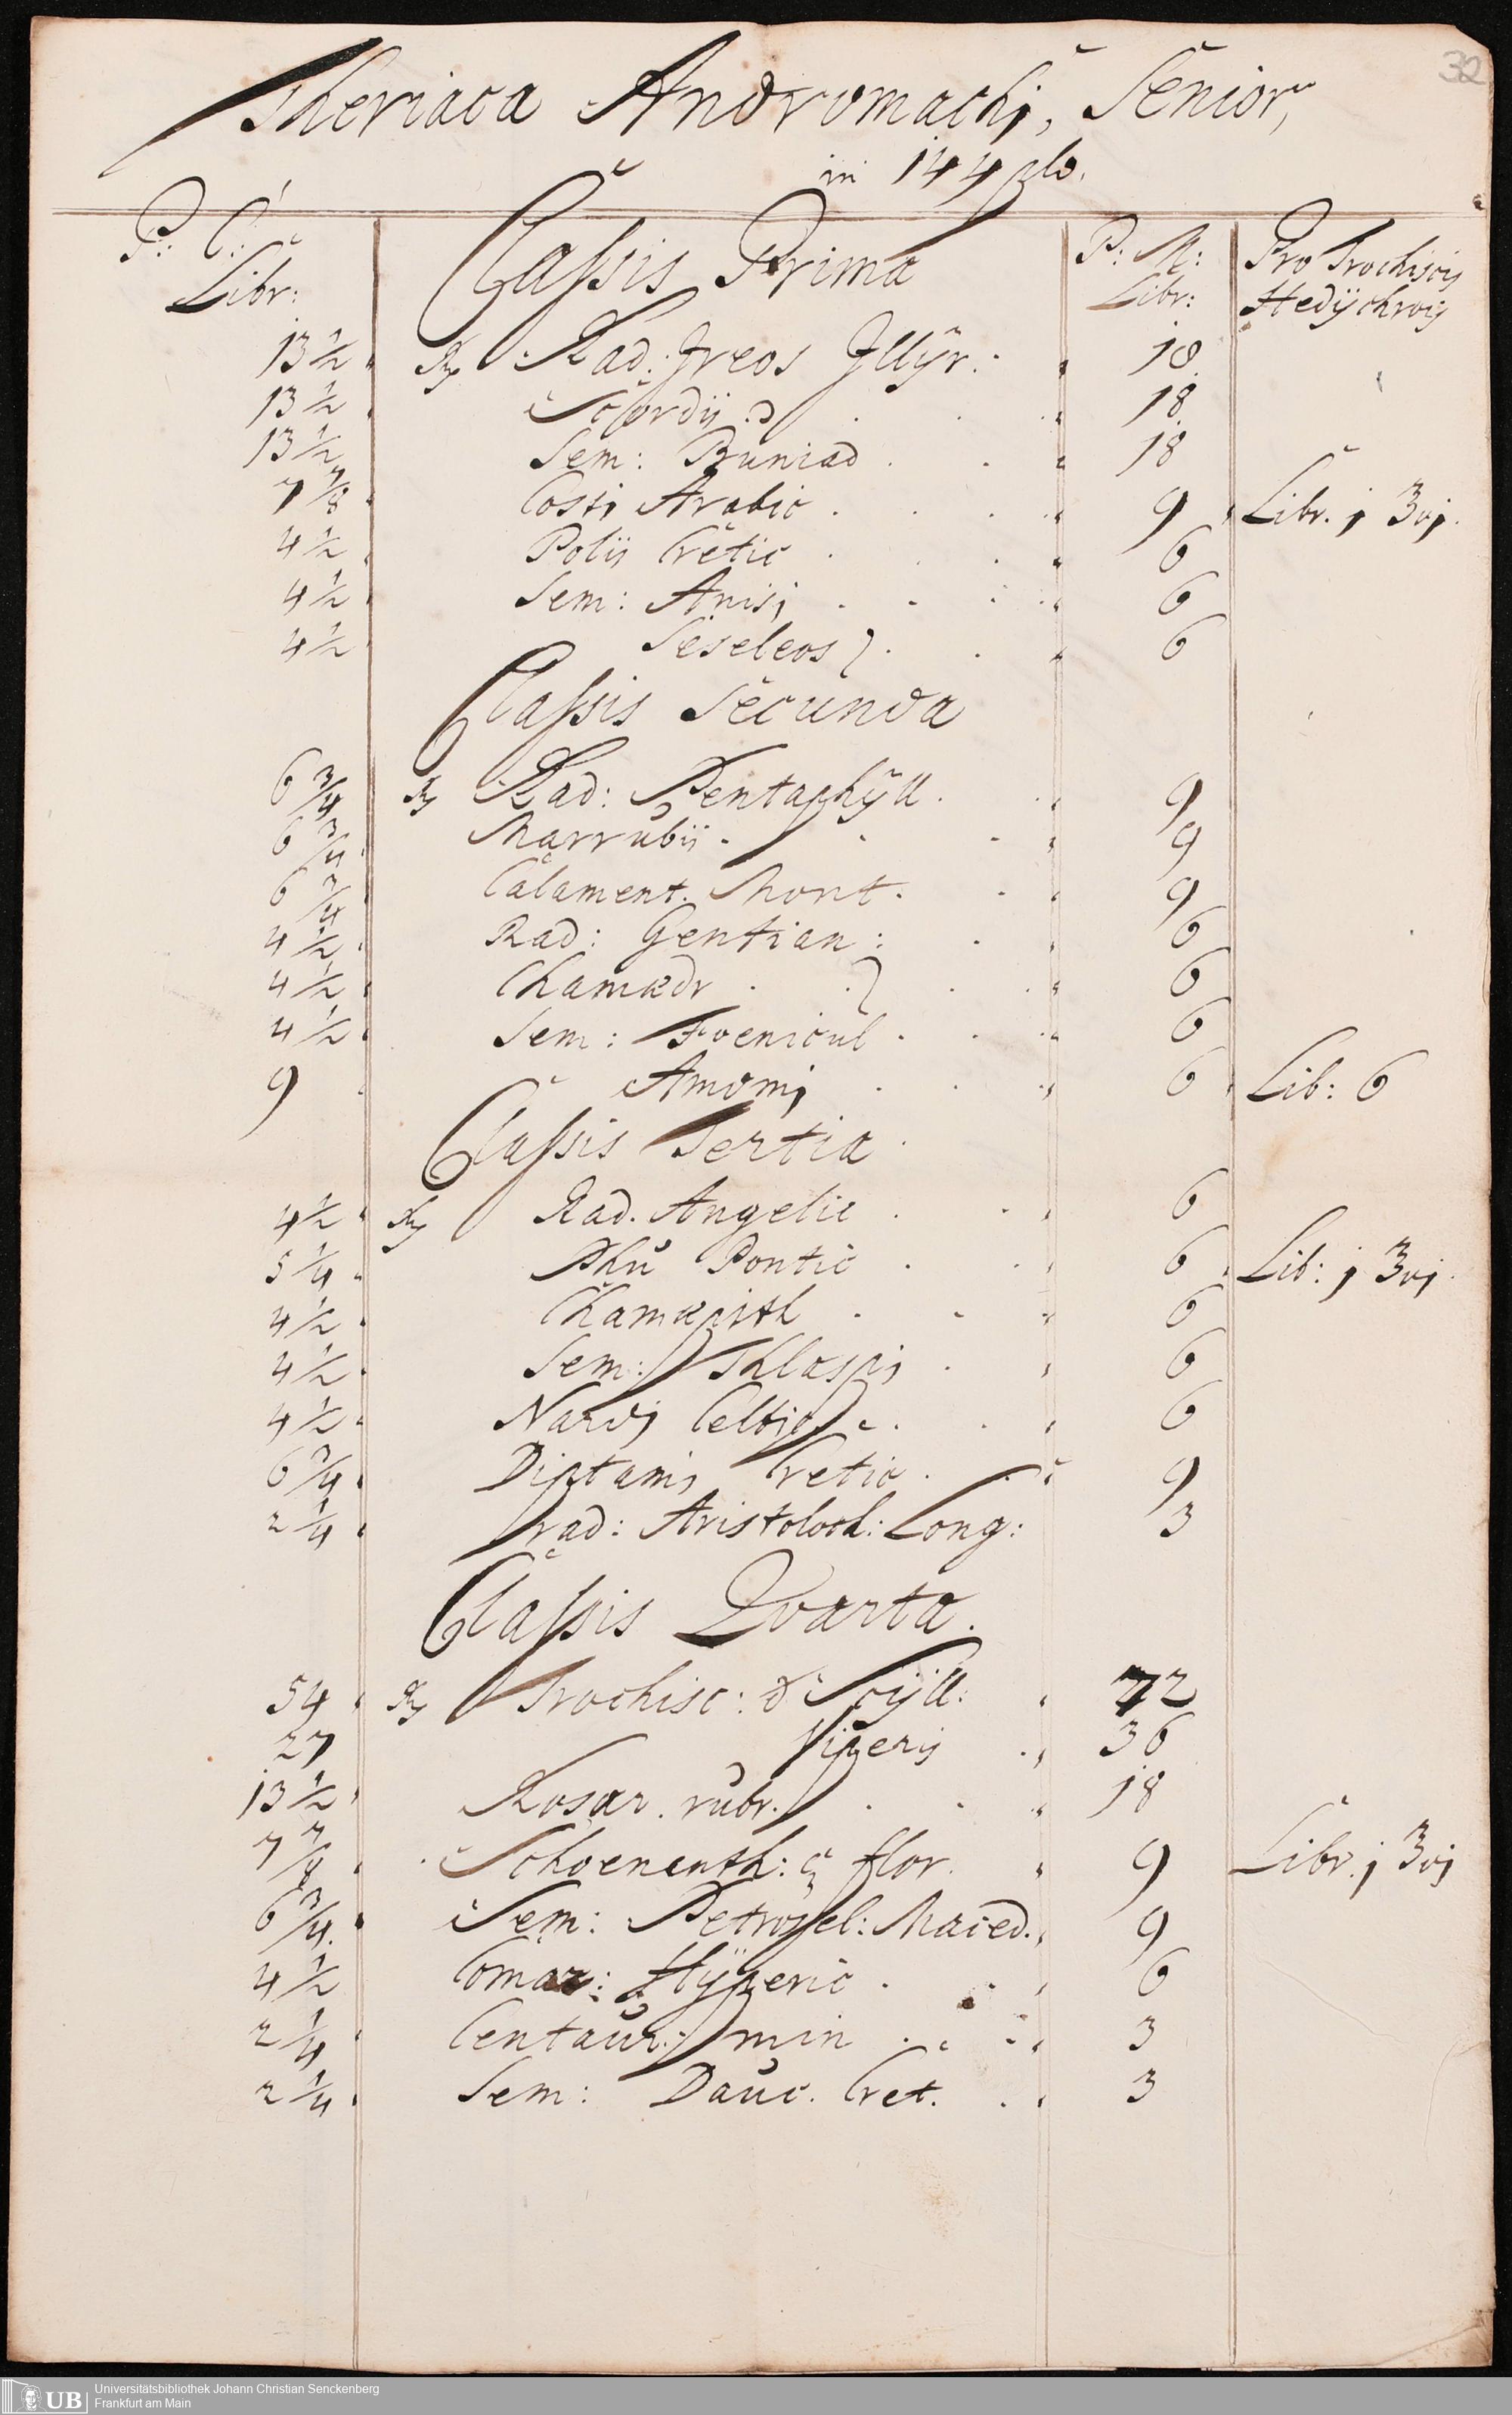 32
Theriaca Andromachi, Senior,
in 144 plo.
P: C: Classis Prima P: M: Pro Trochiscis
Libr: Libr: Hedÿchrois
13 1/2 Rx Rad. Jreos Jllÿr. 18.
13 1/2 Scordii 18.
13 1/2 Sem: Buniad 18
7 7/8 Costi Arabic 9 Libr. j ʒvj.
4 1/2 Polii Cretic 6
4 1/2 Sem: Anisi 6
4 1/2 Seseleos 6
Classis Secunda
6 3/4 Rx Rad: Pentaphÿll. 9
6 3/4 Marrubii 9
6 3/4 Calament. Mont. 9
4 1/2 Rad: Gentian: 6
4 1/2 Chamædr 6
4 1/2 Sem: Foenicul 6
9 Amomi 6 Lib: 6
Classis Tertia
4 1/2 Rx Rad. Angelic 6
5 1/4 Phu Pontic 6 Lib: j ʒvj.
4 1/2 Chamæpith 6
4 1/2 Sem: Thlaspi 6
4 1/2 Nardi Celtic 6
6 3/4 Diptami Cretic 9
2 1/4 rad: Aristoloch: Long: 3
Classis Qvarta.
54 Rx Trochisc: d Scÿll: 72
27 Viperis 36
13 1/2 Rosar. rubr. 18
7 7/8 Schoenanth: c flor. 9 Libr. j ʒvj
6 3/4 Sem: Petrosel: Maced. 9
4 1/2 Comar: Hÿperic 6
2 1/4 Centaur: min 3
2 1/4 Sem: Dauc. Cret. 3
UB Universitätsbibliothek Johann Christian Senckenberg
Frankfurt am Main